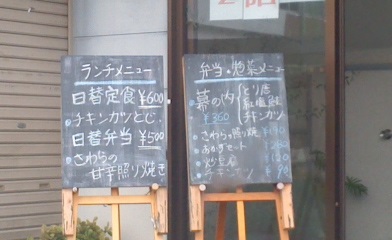 ランチメニュー
日替定食 ¥600
チキンカツとじ
日替弁当 ¥500
さわらの
甘辛照り焼き
弁当・惣菜メニュー
幕の内
とり唐
チキンカツ
¥360
さわらの照り焼
おかずセット
チキンカツ